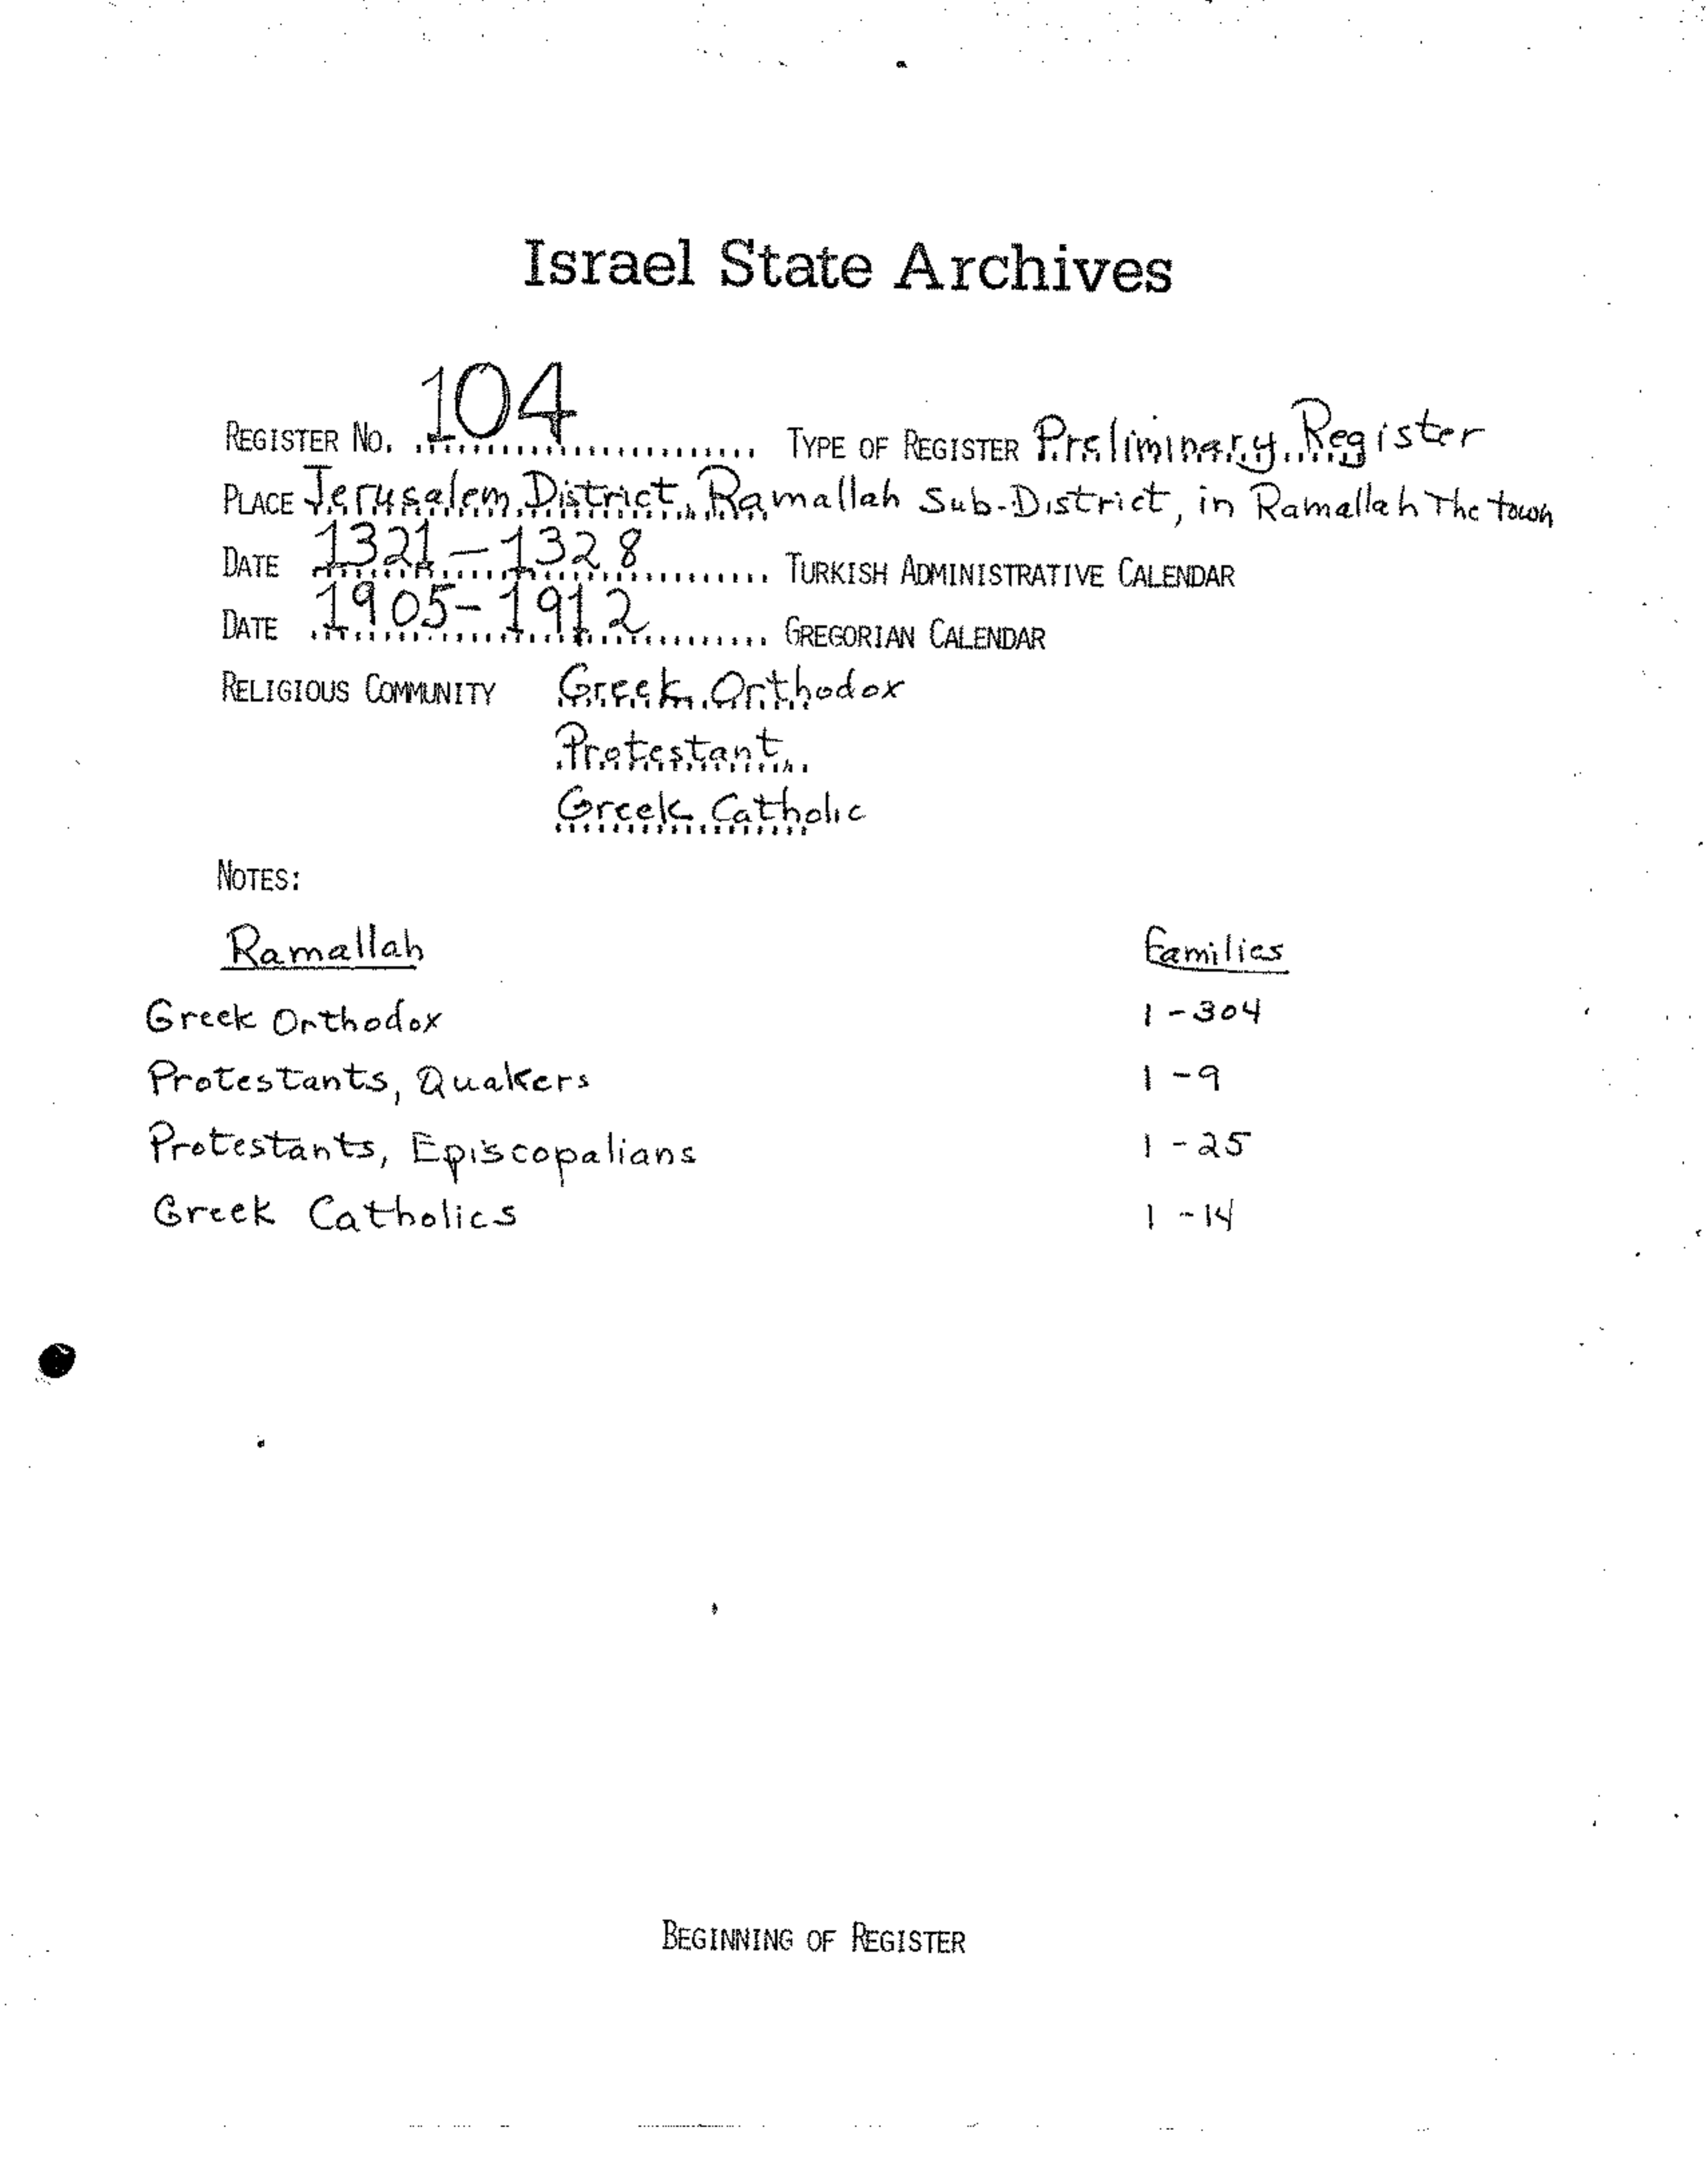 Israel State Archives
REGISTER NO. 104 TYPE OF REGISTER Preliminary Register
PLACE Jerusalem District, Ramallah Sub-District, in Ramallah The town
DATE 1321-1328 TURKISH ADMINISTRATIVE CALENDAR
DATE 1905-1912 GREGORIAN CALENDAR
RELIGIOUS COMMUNITY Greek Orthodox
Protestant
Greek Catholic
NOTES:
Ramallah Families
Greek Orthodox 1-304
Protestants, Quakers 1-9
Protestants, Episcopalians 1-25
Greek Catholics 1-14
BEGINNING OF REGISTER